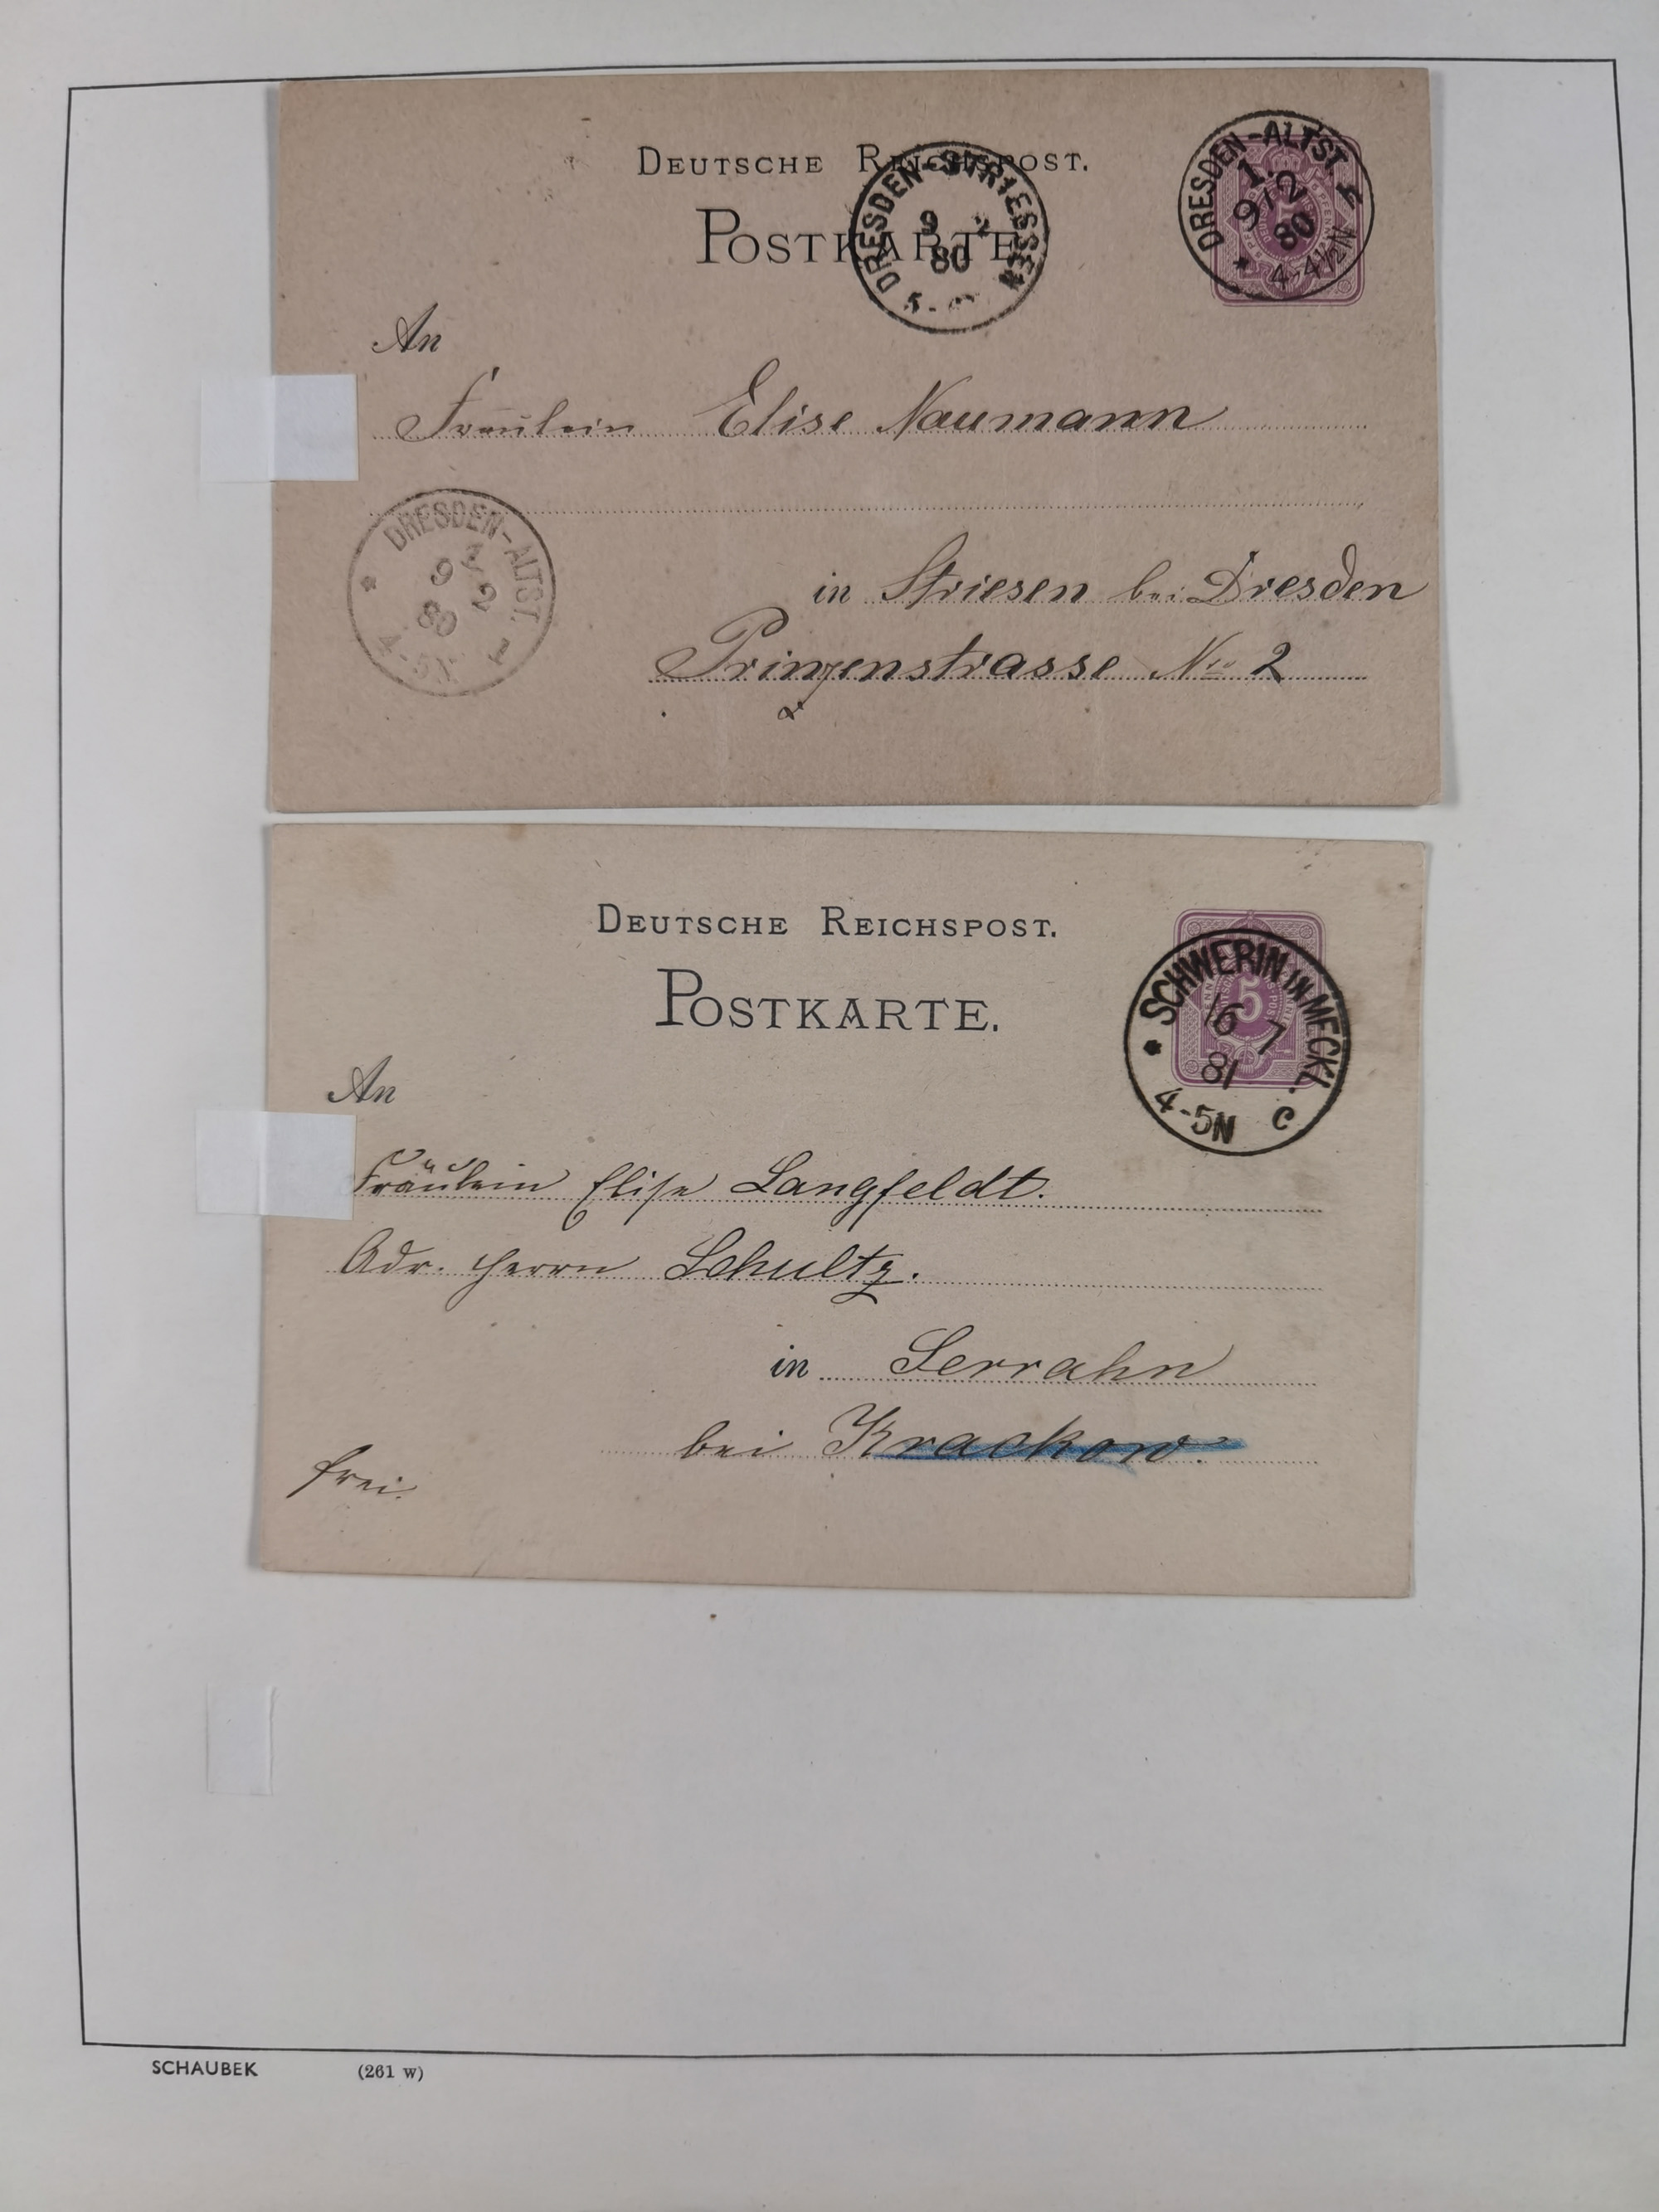 DEUTSCHE REICHSPOST.
POSTKARTE
DRESDEN-STRIESSEN
9 2
80
DRESDEN-ALTST.
1.
9/2
80
4-4½N
An
Fräulein Elise Naumann
DRESDEN-ALTST. 1
9 2
80
in Striesen bei Dresden
Prinzenstrasse No 2
DEUTSCHE REICHSPOST.
POSTKARTE.
SCHWERIN IN MECKL.
16 7
81
4-5N C
5
An
Fräulein Elise Langfeldt.
Adr. Herrn Schultz.
in Serrahn
bei Krackow.
frei.
SCHAUBEK (261 w)